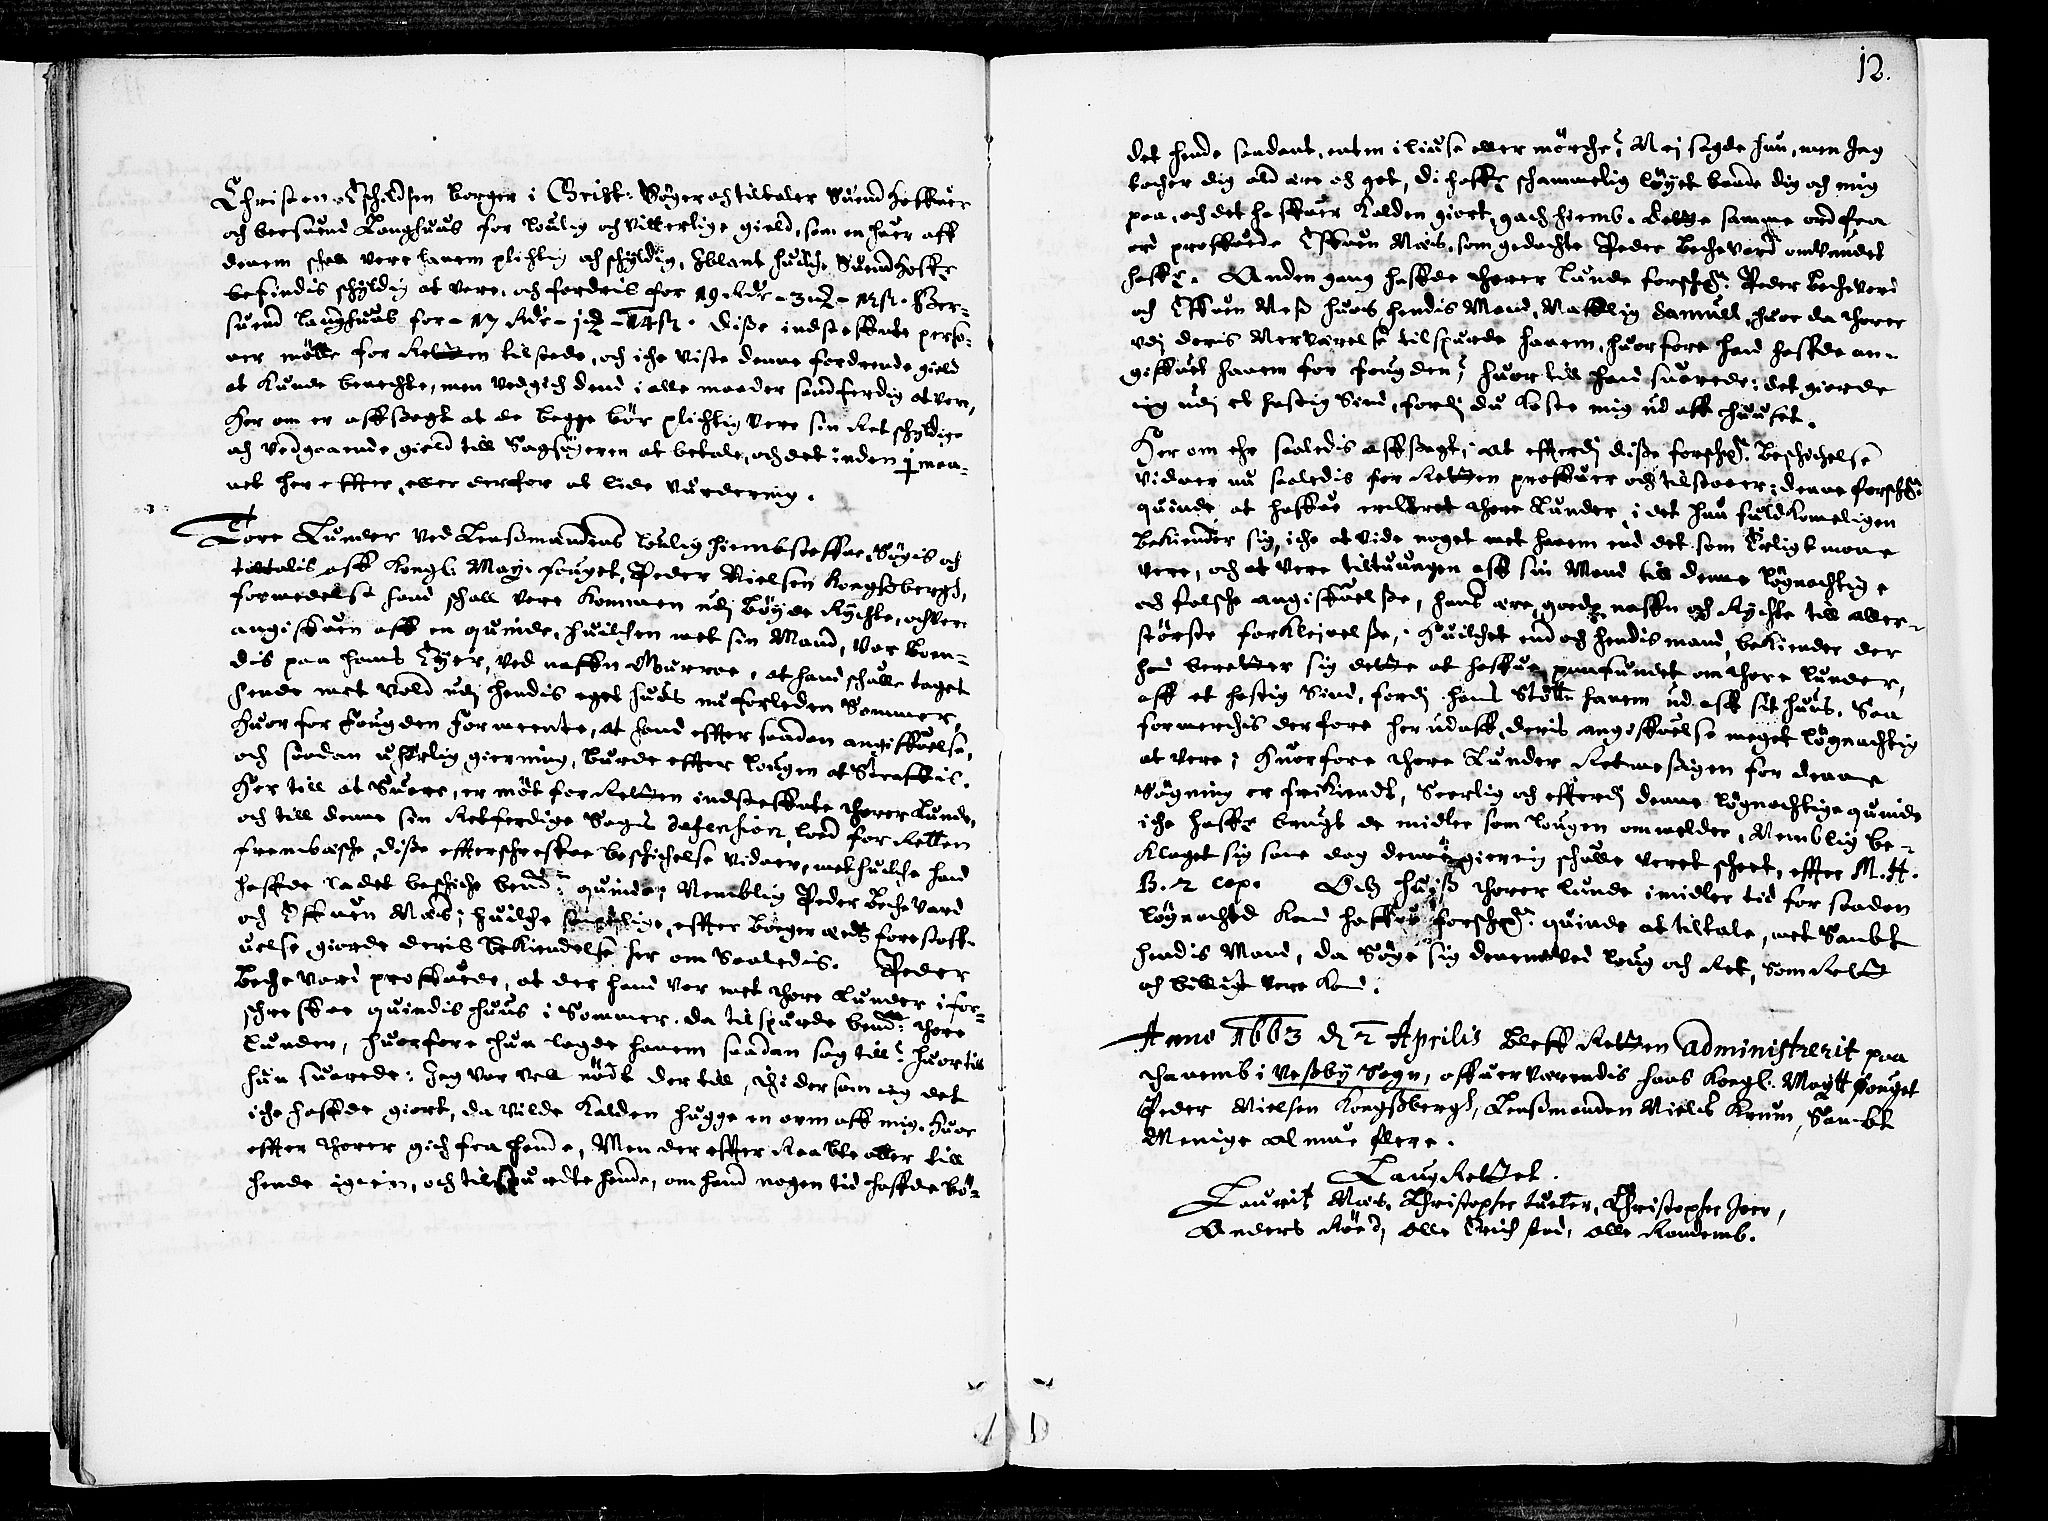 Christen Eschildsen borger i Christ: Søger och tiltaler Suend
och bersuend Langhuus for louflig och vitterlige gield, som en huer aff
dennem schall vere hanem plichtig och schyldig, iblant huilche Suend
befindis schyldig at vere, och fordris for 19 Rdr - 3 -
suend langhuus for - 17 Rdr - Disse indsteffnte perso-
ner møtte for Retten tilstede, och iche viste denne fordrende gield
at kunde benechte, men vedgich dend i alle maader sandferdig at vere,
Her om er affsagt at de begge bør plichtig vere sin Ret schyldige
och vedgaaende gield till Sagsøgeren at betale, och det inden j maa-
net her effter, eller derfor at lide vurdering.
Tore Lunder ved Lensmandens louflig hiembsteffne, Søgis och
tiltalis aff Kongl. May: fouget, Peder Nielsen Kongsberg,
formedelst hand schall vere kommen udj bøyde Rychte, och vere
angiffuen aff en quinde, huilchen met sin Mand, var boen-
dis paa hans Eyer, ved naffn Murroe, at hand schulle taget
hende met vold udj hendis eget huus nu forleden Sommer,
Huorfor fougden formeente, at hand effter saadan angiffuelse,
och saadan uhørlig gierning, burde effter lougen at Straffis.
Her till at Suere, er møt for Retten indsteffnte Thorer Lunde,
och till denne sin Retferdige Sagis defension, loed for Retten
frembæsche, disse effterschreffne beschichelse vidner, met huilche hand
haffde ladet beschiche bemt: quinde, Nemblig Peder Bechevard
och Effuen Næs; huilche samptlige, effter bøger æds foresteff-
uelse, giorde deris bekiendelse her om Saaledis. Peder
Bechevard proffuede, at der hand var met Thore Lunder i for-
schreffne quindis huus i Sommer, da tilspurde bemt: Thore
Lunder, huorfore hun lagde hanem saadan sag till? huortil
hun suarede: Jeg var vell nødt der till, thi dersom ieg det
iche haffde giort, da vilde Kalden hugge en arm aff mig. Huor
effter Thorer gich fra hende, Men der effter Raabte atter till
hende igien, och tilspurdte hende, om hand nogen tid haffde bø-
12.
det hende saadant, enten i liuse eller mørche? Nej sagde hun, men Jeg
tacher dig ald ære och got, di haffr schammelig løyet baade dig och mig
paa, och det haffuer Kalden giort, gach hiemb. Dette samme ord fra
ord proffuede Effuen Næs, som gedachte Peder Bechevard omvundet
haffr. Anden gang haffde Thorer Lunde forschr: Peder Bechevard
och Effuen Næs huos hendis Mand, Naffnlig Samuell, huor da Thorer
udj deris Nerværelse tilspurde hanem, huorfore hand haffde an-
giffuet hanem for fougden? huor till hand suarede: det giorde
ieg udj et hastig Sind, fordj du kaste mig ud aff huuset.
Her om ehr saaledis affsagt; at efterdj disse forschr: Beschichelse
vidner nu saaledis for Retten proffuer och tilstaaer; denne forschr:
quinde at haffue ærklæret Thore Lunder, i det hun fuldkomeligen
bekiender sig, iche at vide noget met hanem end det som Erligt maae
vere, och at vere tiltuungen aff sin Mand till denne løgnachtige
och falsche angiffuelse, hans ære, goede naffn och Rychte till aller-
største forklejnelse, Huilchet end och hendis mand, bekiender der
hand beretter sig dette at haffue paafundet om Thore Lunder,
aff et hastig Sind, fordj hand Støtte hanem ud aff sit huus. Saa
formerchis derfore her udaff, deris angiffuelse meget løgnachtig
at vere; Huorfore Thore Lunder Retmessigen for denne
Søgning er frikiendt, Serlig och efterdj denne løgnachtige quinde
iche haffr brugt de midler som lougen ommelder, Nemblig be-
klaget sig same dag denne gierning schulle veret scheet, effter M. H.
B. 2 cap. Och huis Thorer lunde imidler tid for saaden
løgnachted kand haffue forschr: quinde at tiltale, met Sambt
hendis Mand, da Søge sig derened ved loug och Ret, som Rett
och billigt vere kand.
Anno 1663 d 2 Aprilis bleff Retten administrerit paa
Thanemb i Vestby Sogn, offuerværendis hans Kongl: Maytt fouget
Peder Nielsen Kongsberg, Lensmanden Nielss Krum, Sambt
Menige almue flere.
LaugRettet.
Lauritz Næs, Christopher tueter, Christopher Jeer,
Anders Røed, Olle Erichstad, Olle Randemb.